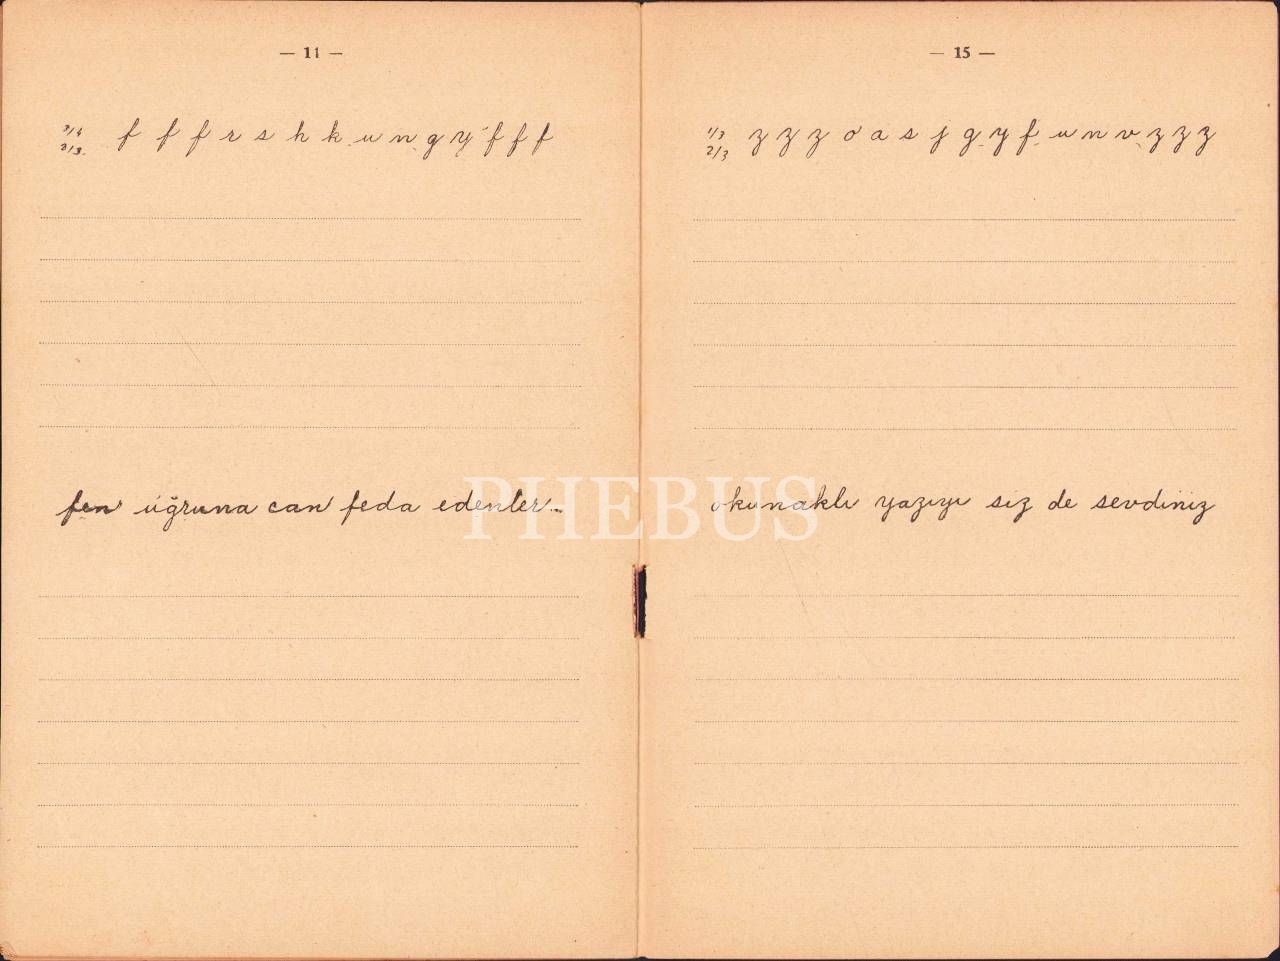 — 14 —
3/4 f f f r s h k u n g y f f f
2/3
fen uğruna can feda edenler..
— 15 —
1/3 z z z o a s j g y f u n v z z z
2/3
okunaklı yazıyı siz de sevdiniz
PHEBUS